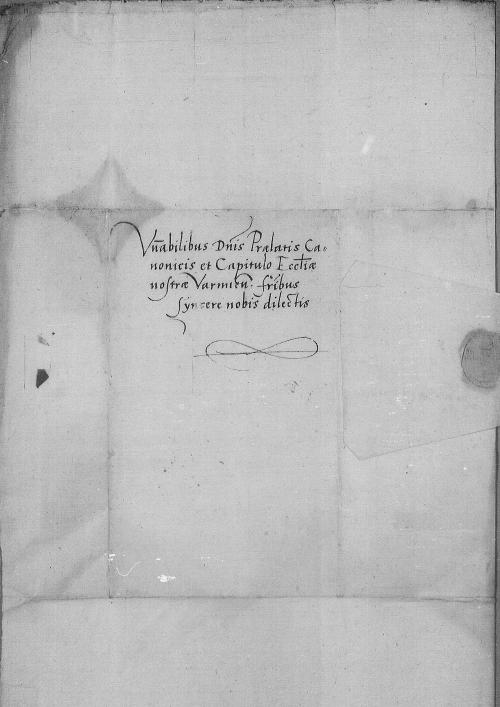 Vn̄abilibus Dn̄is Prælatis Ca-
nonicis et Capitulo Eccl̄iæ
nostræ Varmien̄. fr̄ibus
syncere nobis dilectis